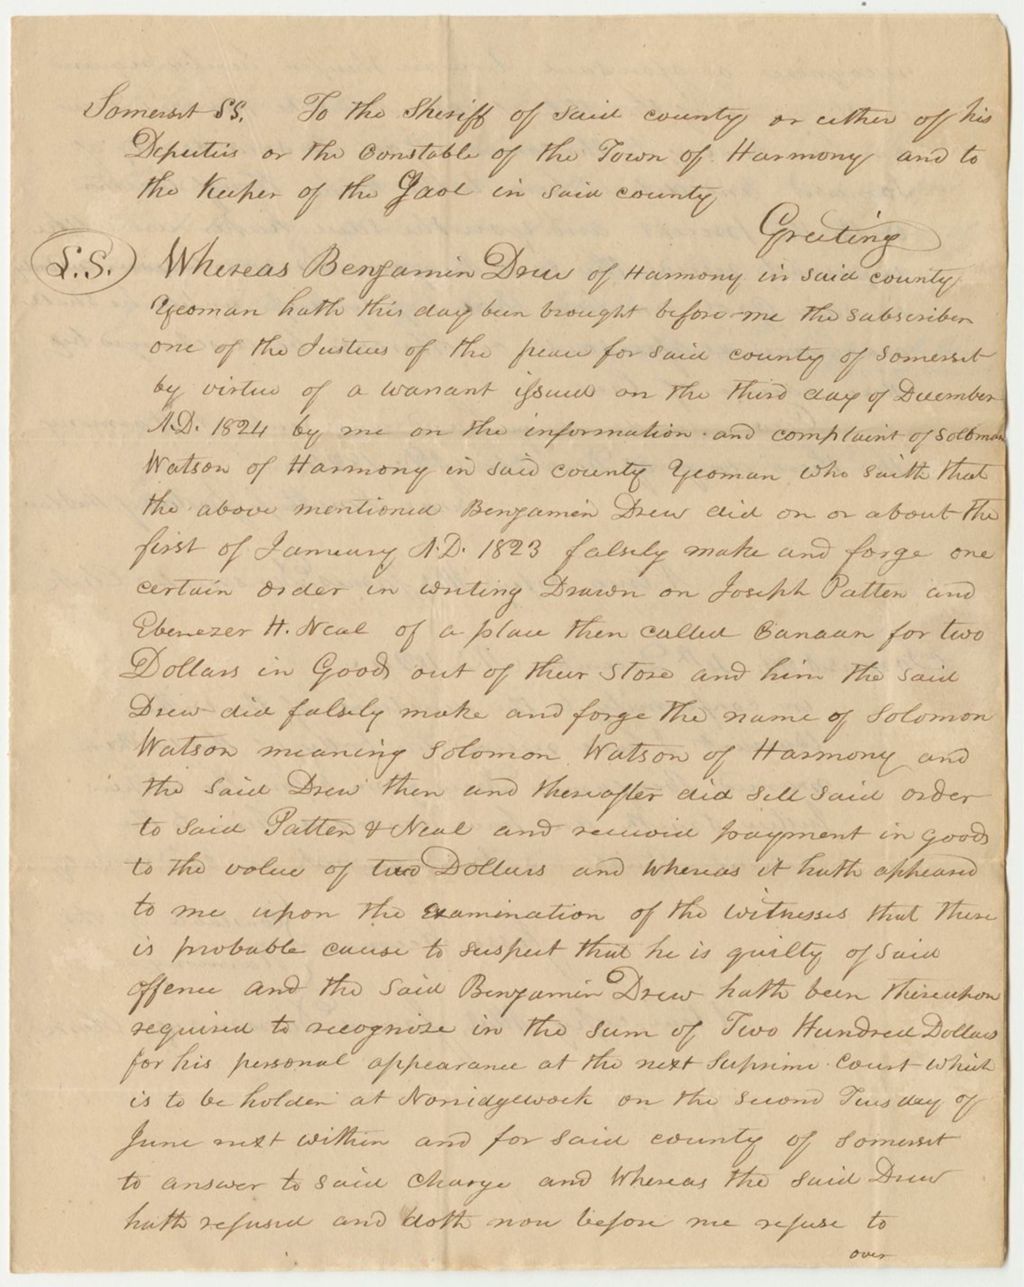 Somerset SS. To the Sheriff of said county or either of his
Deputies or the Constable of the Town of Harmony and to
the Keeper of the Gaol in said county
Greeting
L.S. Whereas Benjamin Drew of Harmony in said county
Yeoman hath this day been brought before me the subscriber
one of the Justices of the peace for said county of Somerset
by virtue of a warrant issued on the third day of December
A.D. 1824 by me on the information and complaint of Solomon
Watson of Harmony in said county Yeoman who saith that
the above mentioned Benjamin Drew did on or about the
first of January A.D. 1823 falsely make and forge one
certain order in writing Drawn on Joseph Patten and
Ebenezer H. Neal of a place then called Canaan for two
Dollars in Goods out of their Store and him the said
Drew did falsely make and forge the name of Solomon
Watson meaning Solomon Watson of Harmony and
the said Drew then and thereafter did sell said order
to said Patten & Neal and receivd payment in goods
to the value of two Dollars and whereas it hath appeared
to me upon the examination of the witnesses that there
is probable cause to suspect that he is guilty of said
offence and the said Benjamin Drew hath been thereupon
required to recognize in the sum of Two Hundred Dollars
for his personal appearance at the next Supreme Court which
is to be holden at Norridgewock on the second Tuesday of
June next within and for said county of Somerset
to answer to said charge and whereas the said Drew
hath refused and doth now before me refuse to
over